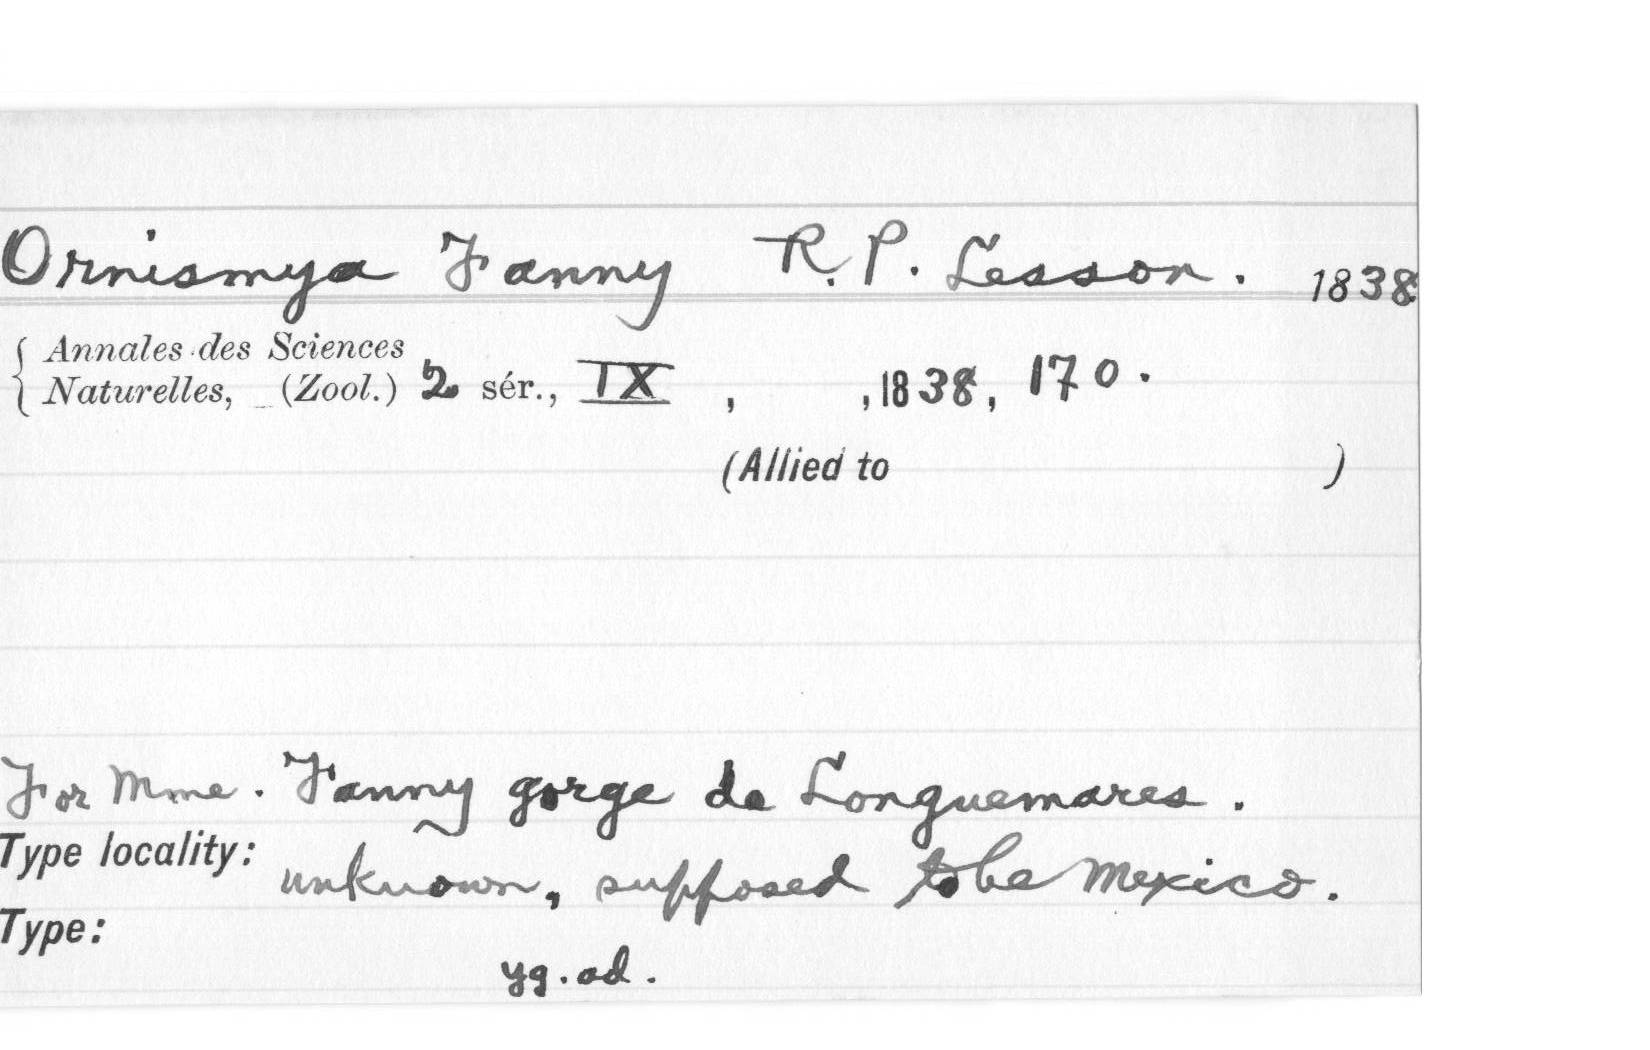 Ornismya Fanny R. P. Lesson. 1838
Annales des Sciences
Naturelles, (Zool.) 2 sér., IX , ,1838, 170.
(Allied to )
For Mme. Fanny gorge de Longuemares.
Type locality: unknown, supposed to be Mexico.
Type:
yg. ad.